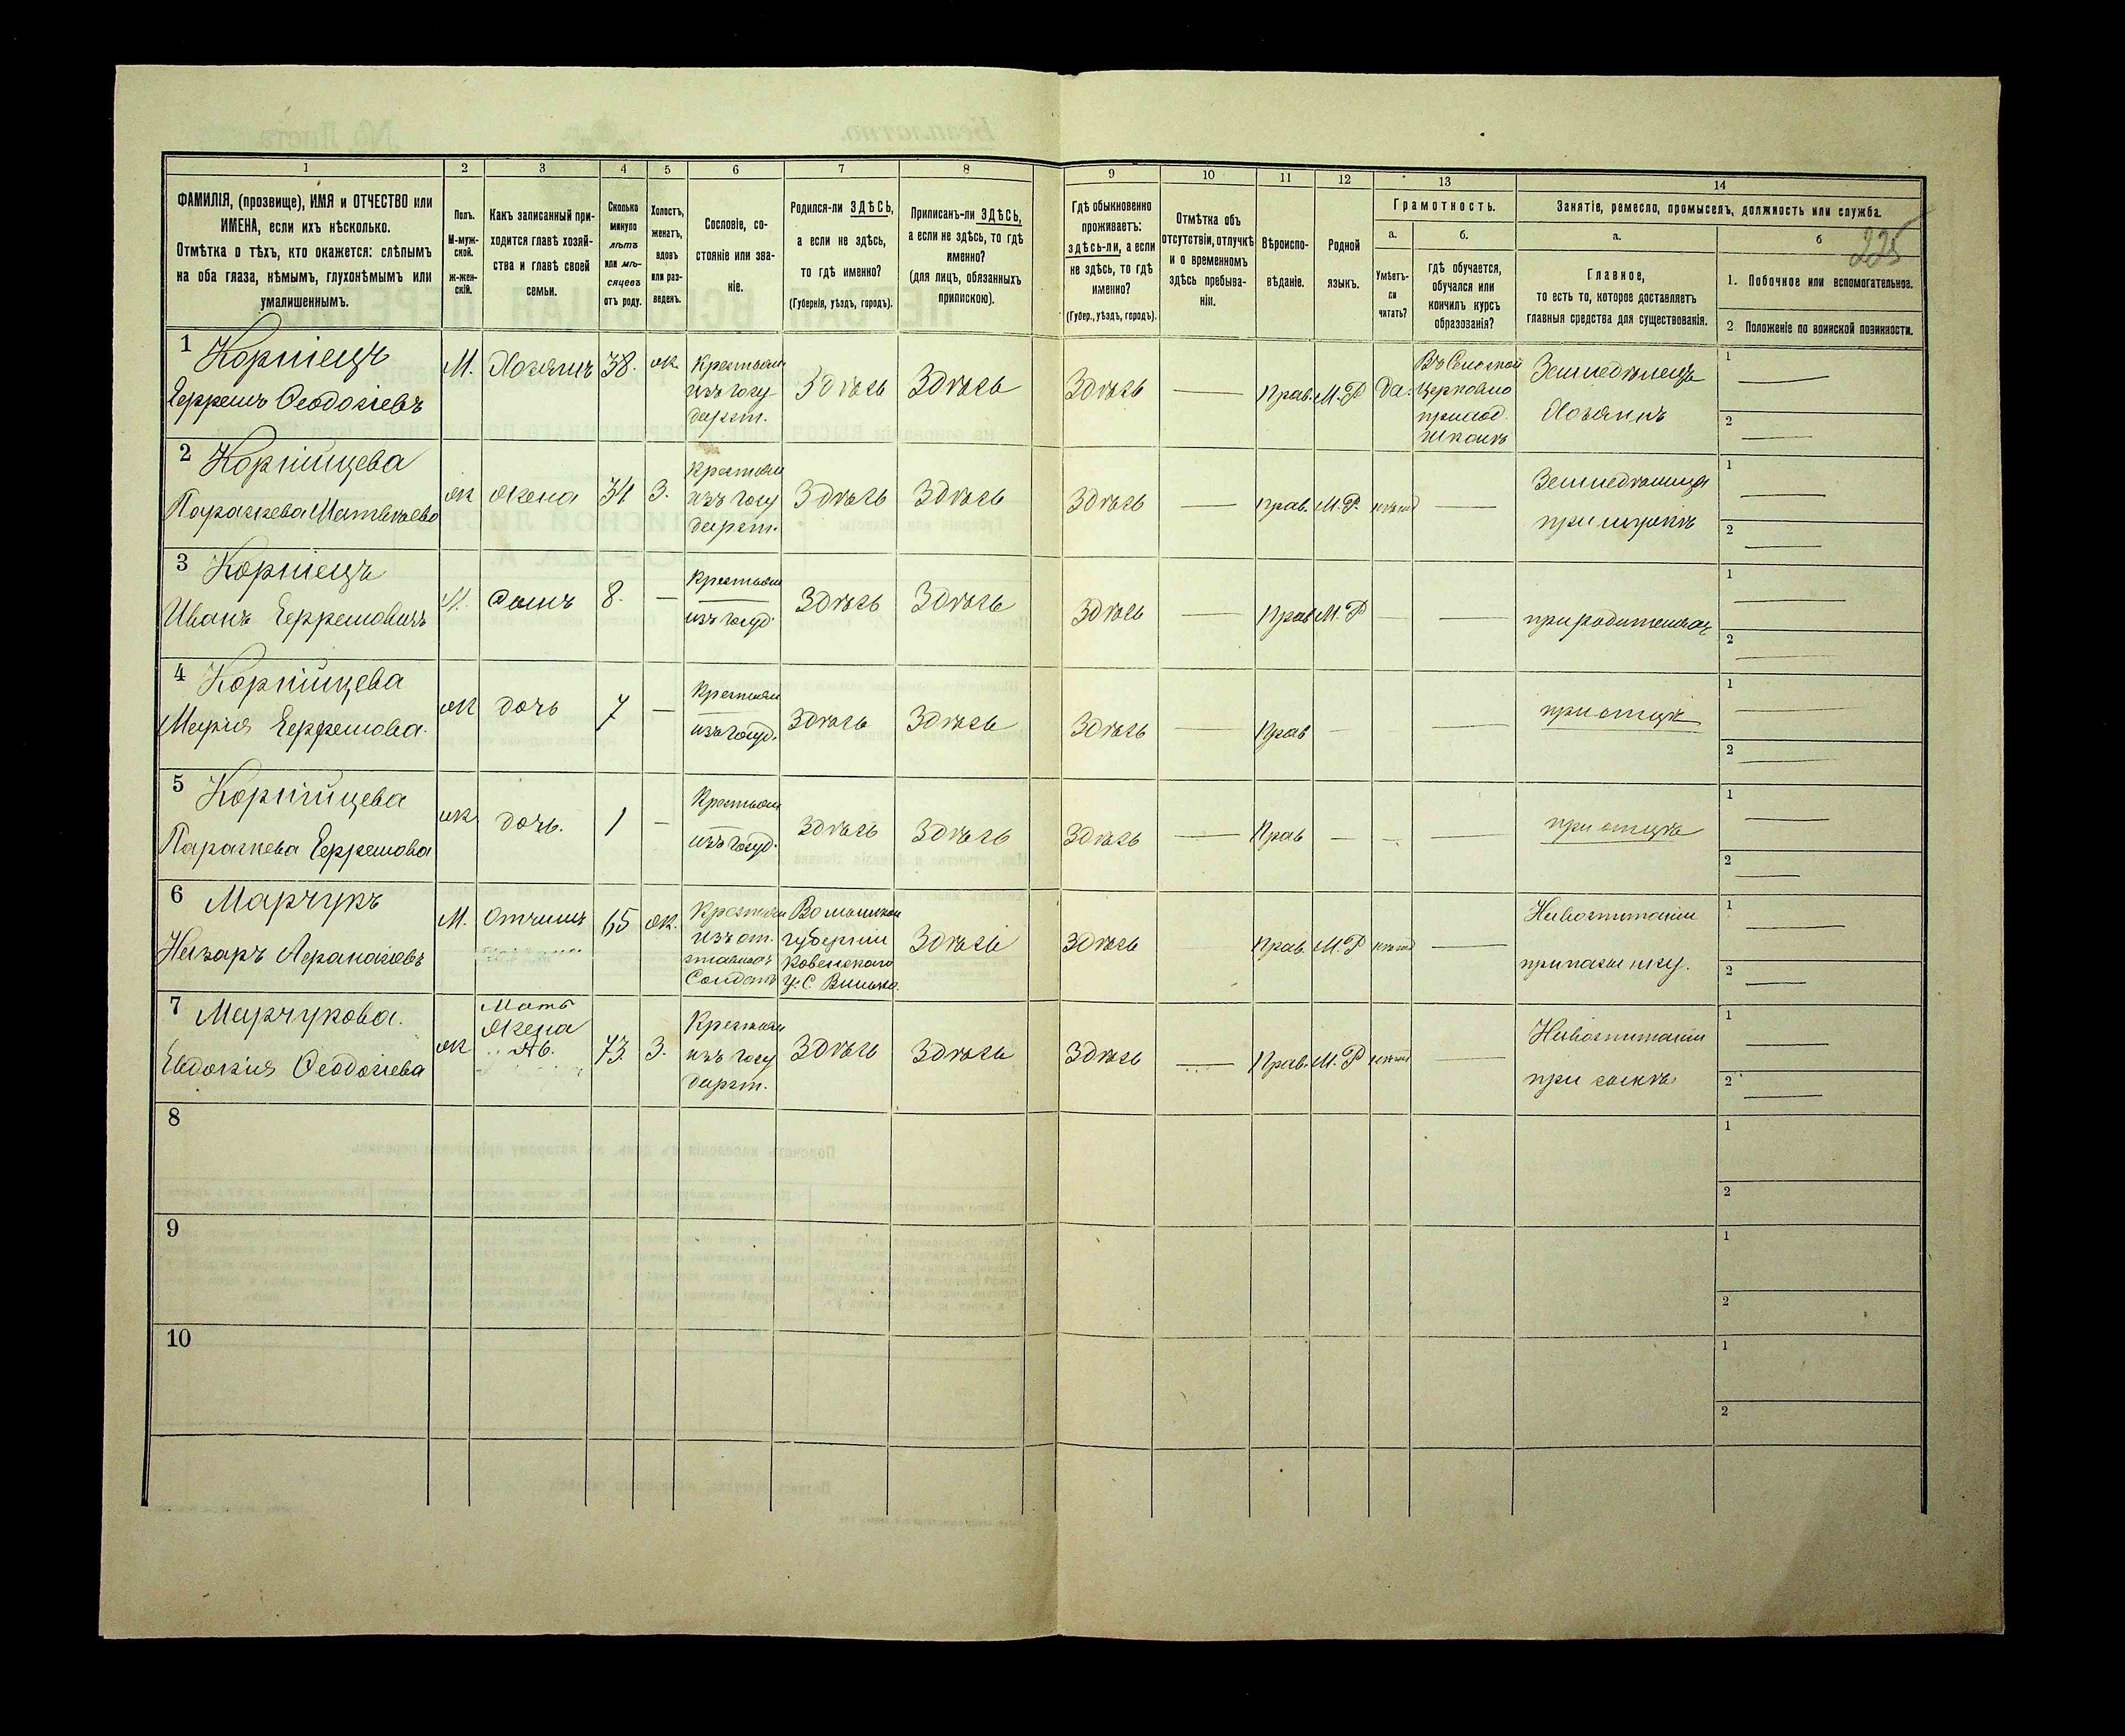 225
1 2 3 4 5 6 7 8 9 10 11 12 13 14
ФАМИЛІЯ, (прозвище), ИМЯ и ОТЧЕСТВО или
ИМЕНА, если ихъ нѣсколько.
Отмѣтка о тѣхъ, кто окажется: слѣпымъ
на оба глаза, нѣмымъ, глухонѣмымъ или
умалишеннымъ.
Полъ.
М-муж-
ской.
Ж-жен-
скій.
Какъ записанный при-
ходится главѣ хозяй-
ства и главѣ своей
семьи.
Сколько
минуло
лѣтъ
или мѣ-
сяцевъ
отъ роду.
Холостъ,
женатъ,
вдовъ
или раз-
веденъ.
Сословіе, со-
стояніе или зва-
ніе.
Родился-ли ЗДѢСЬ,
а если не здѣсь,
то гдѣ именно?
(Губернія, уѣздъ, городъ).
Приписанъ-ли ЗДѢСЬ,
а если не здѣсь, то гдѣ
именно?
(для лицъ, обязанныхъ
припискою).
Гдѣ обыкновенно
проживаетъ:
здѣсь-ли, а если
не здѣсь, то гдѣ
именно?
(Губер., уѣздъ, городъ).
Отмѣтка объ
отсутствіи, отлучкѣ
и о временномъ
здѣсь пребыва-
ніи.
Вѣроиспо-
вѣданіе.
Родной
языкъ.
Грамотность.
а.
Умѣетъ-
ли
читать?
б.
гдѣ обучается,
обучался или
кончилъ курсъ
образованія?
Занятіе, ремесло, промыселъ, должность или служба.
а.
Главное,
то есть то, которое доставляетъ
главныя средства для существованія.
б
1. Побочное или вспомогательное.
2. Положеніе по воинской повинности.
1 Корпіецъ
Ефремъ Ѳеодосіевъ
М. Хозяинъ 38. ж.
Крестьян
изъ госу
дарст.
Здѣсь Здѣсь Здѣсь — Прав. М.Р Да.
Въ Сельской
Церковно
приход.
школѣ
Земледѣлецъ
Хозяинъ
1 —
2 —
2 Корпійцева
Параскева Матвѣева
ж жена 34 З.
Крестьян
изъ госу
дарст.
Здѣсь Здѣсь Здѣсь — Прав. М.Р. нѣтъ —
Земледѣлица
при мужѣ
1 —
2 —
3 Корпіецъ
Иванъ Ефремовичъ
М. Сынъ 8. —
Крестьян
изъ госуд.
Здѣсь Здѣсь Здѣсь — Прав М.Р — —
при родителяхъ
1 —
2 —
4 Корпійцева
Марія Ефремова.
ж дочь 7 —
Крестьян
изъ госуд.
Здѣсь Здѣсь Здѣсь — Прав — — —
при отцѣ
1 —
2 —
5 Корпійцева
Параскева Ефремова
ж дочь. 1 —
Крестьян
изъ госуд.
Здѣсь Здѣсь Здѣсь — Прав — — —
при отцѣ
1 —
2 —
6 Марчукъ
Назаръ Афанасіевъ
М. Отчимъ 65 ж.
Крестьян
изъ от.
ставныхъ
Солдатъ
Волынской
губерніи
Ковенскаго
у. С.
Здѣсь Здѣсь Прав. М.Р нѣтъ —
На воспитаніи
при пасынку.
1 —
2 —
7 Марчукова.
Евдокія Ѳеодосіева
ж
Мать
жена
73 З.
Крестьян
изъ госу
дарст.
Здѣсь Здѣсь Здѣсь — Прав. М.Р нѣтъ —
На воспитаніи
при сынѣ
1 —
2 —
8
1
2
9
1
2
10
1
2